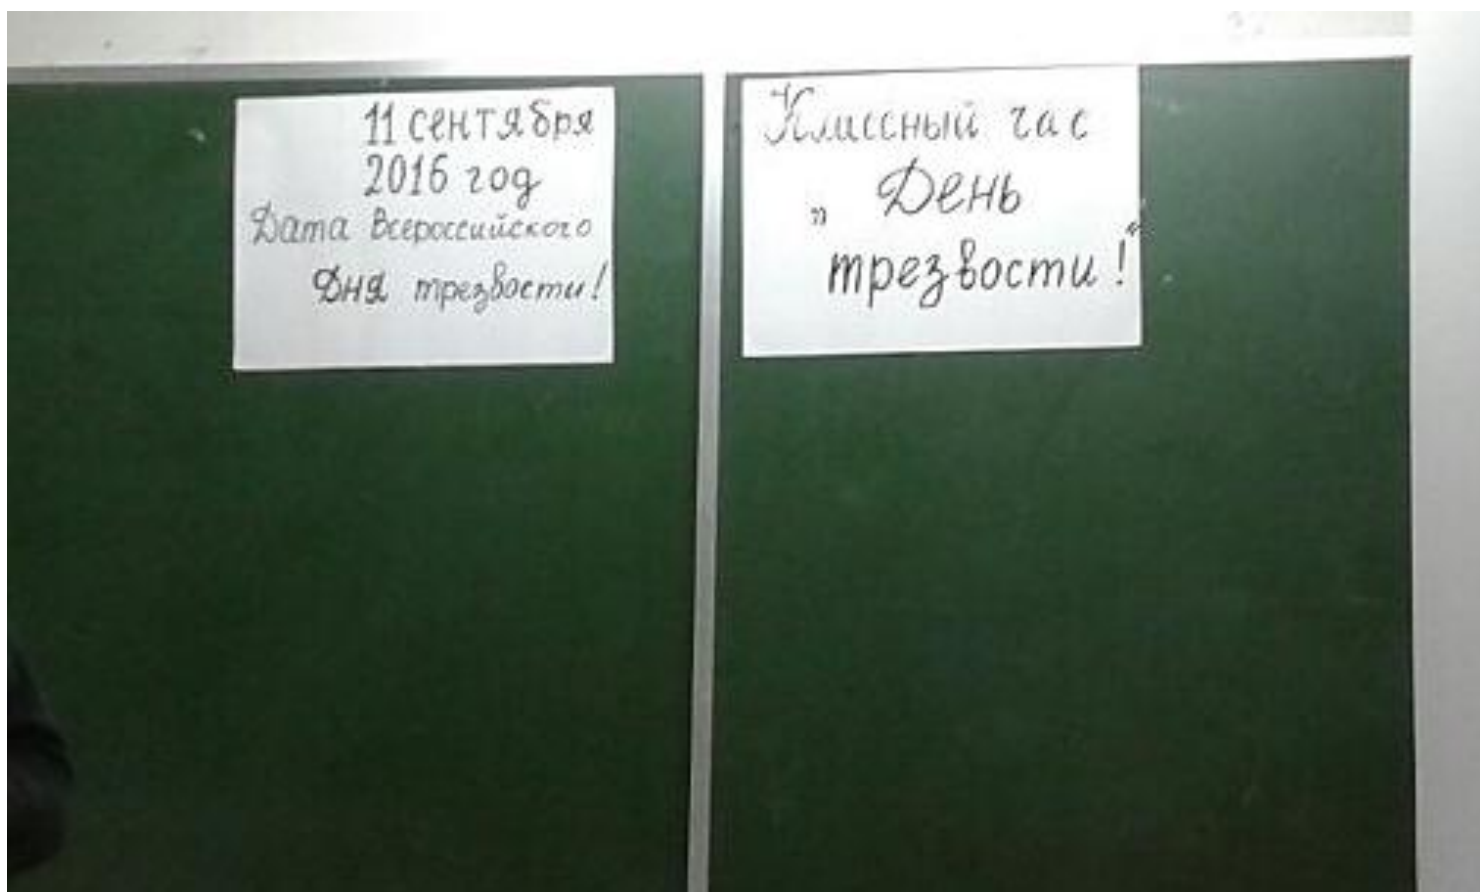 11 сентября
2016 год
Дата Всероссийского
Дня трезвости!
Классный час
„ День
трезвости! “